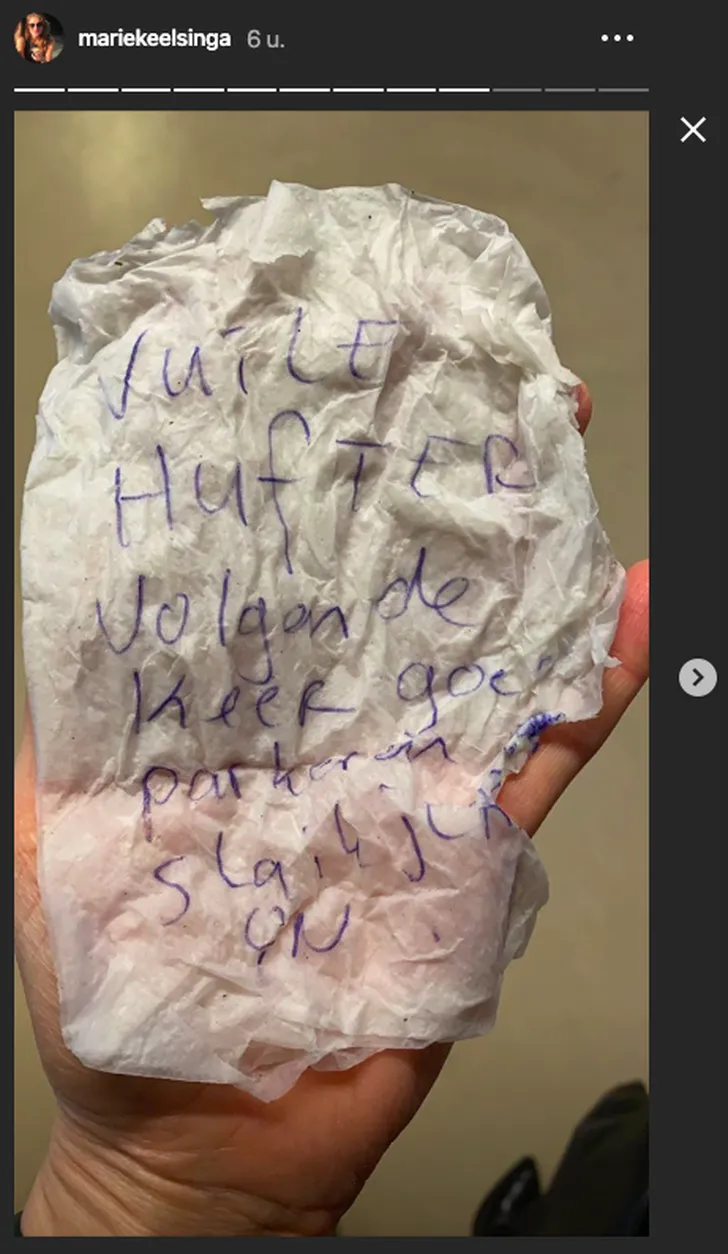 mariekeelsinga 6 u.
VuiLE
HufTER
Volgende
KeeR
parkeren
slaik